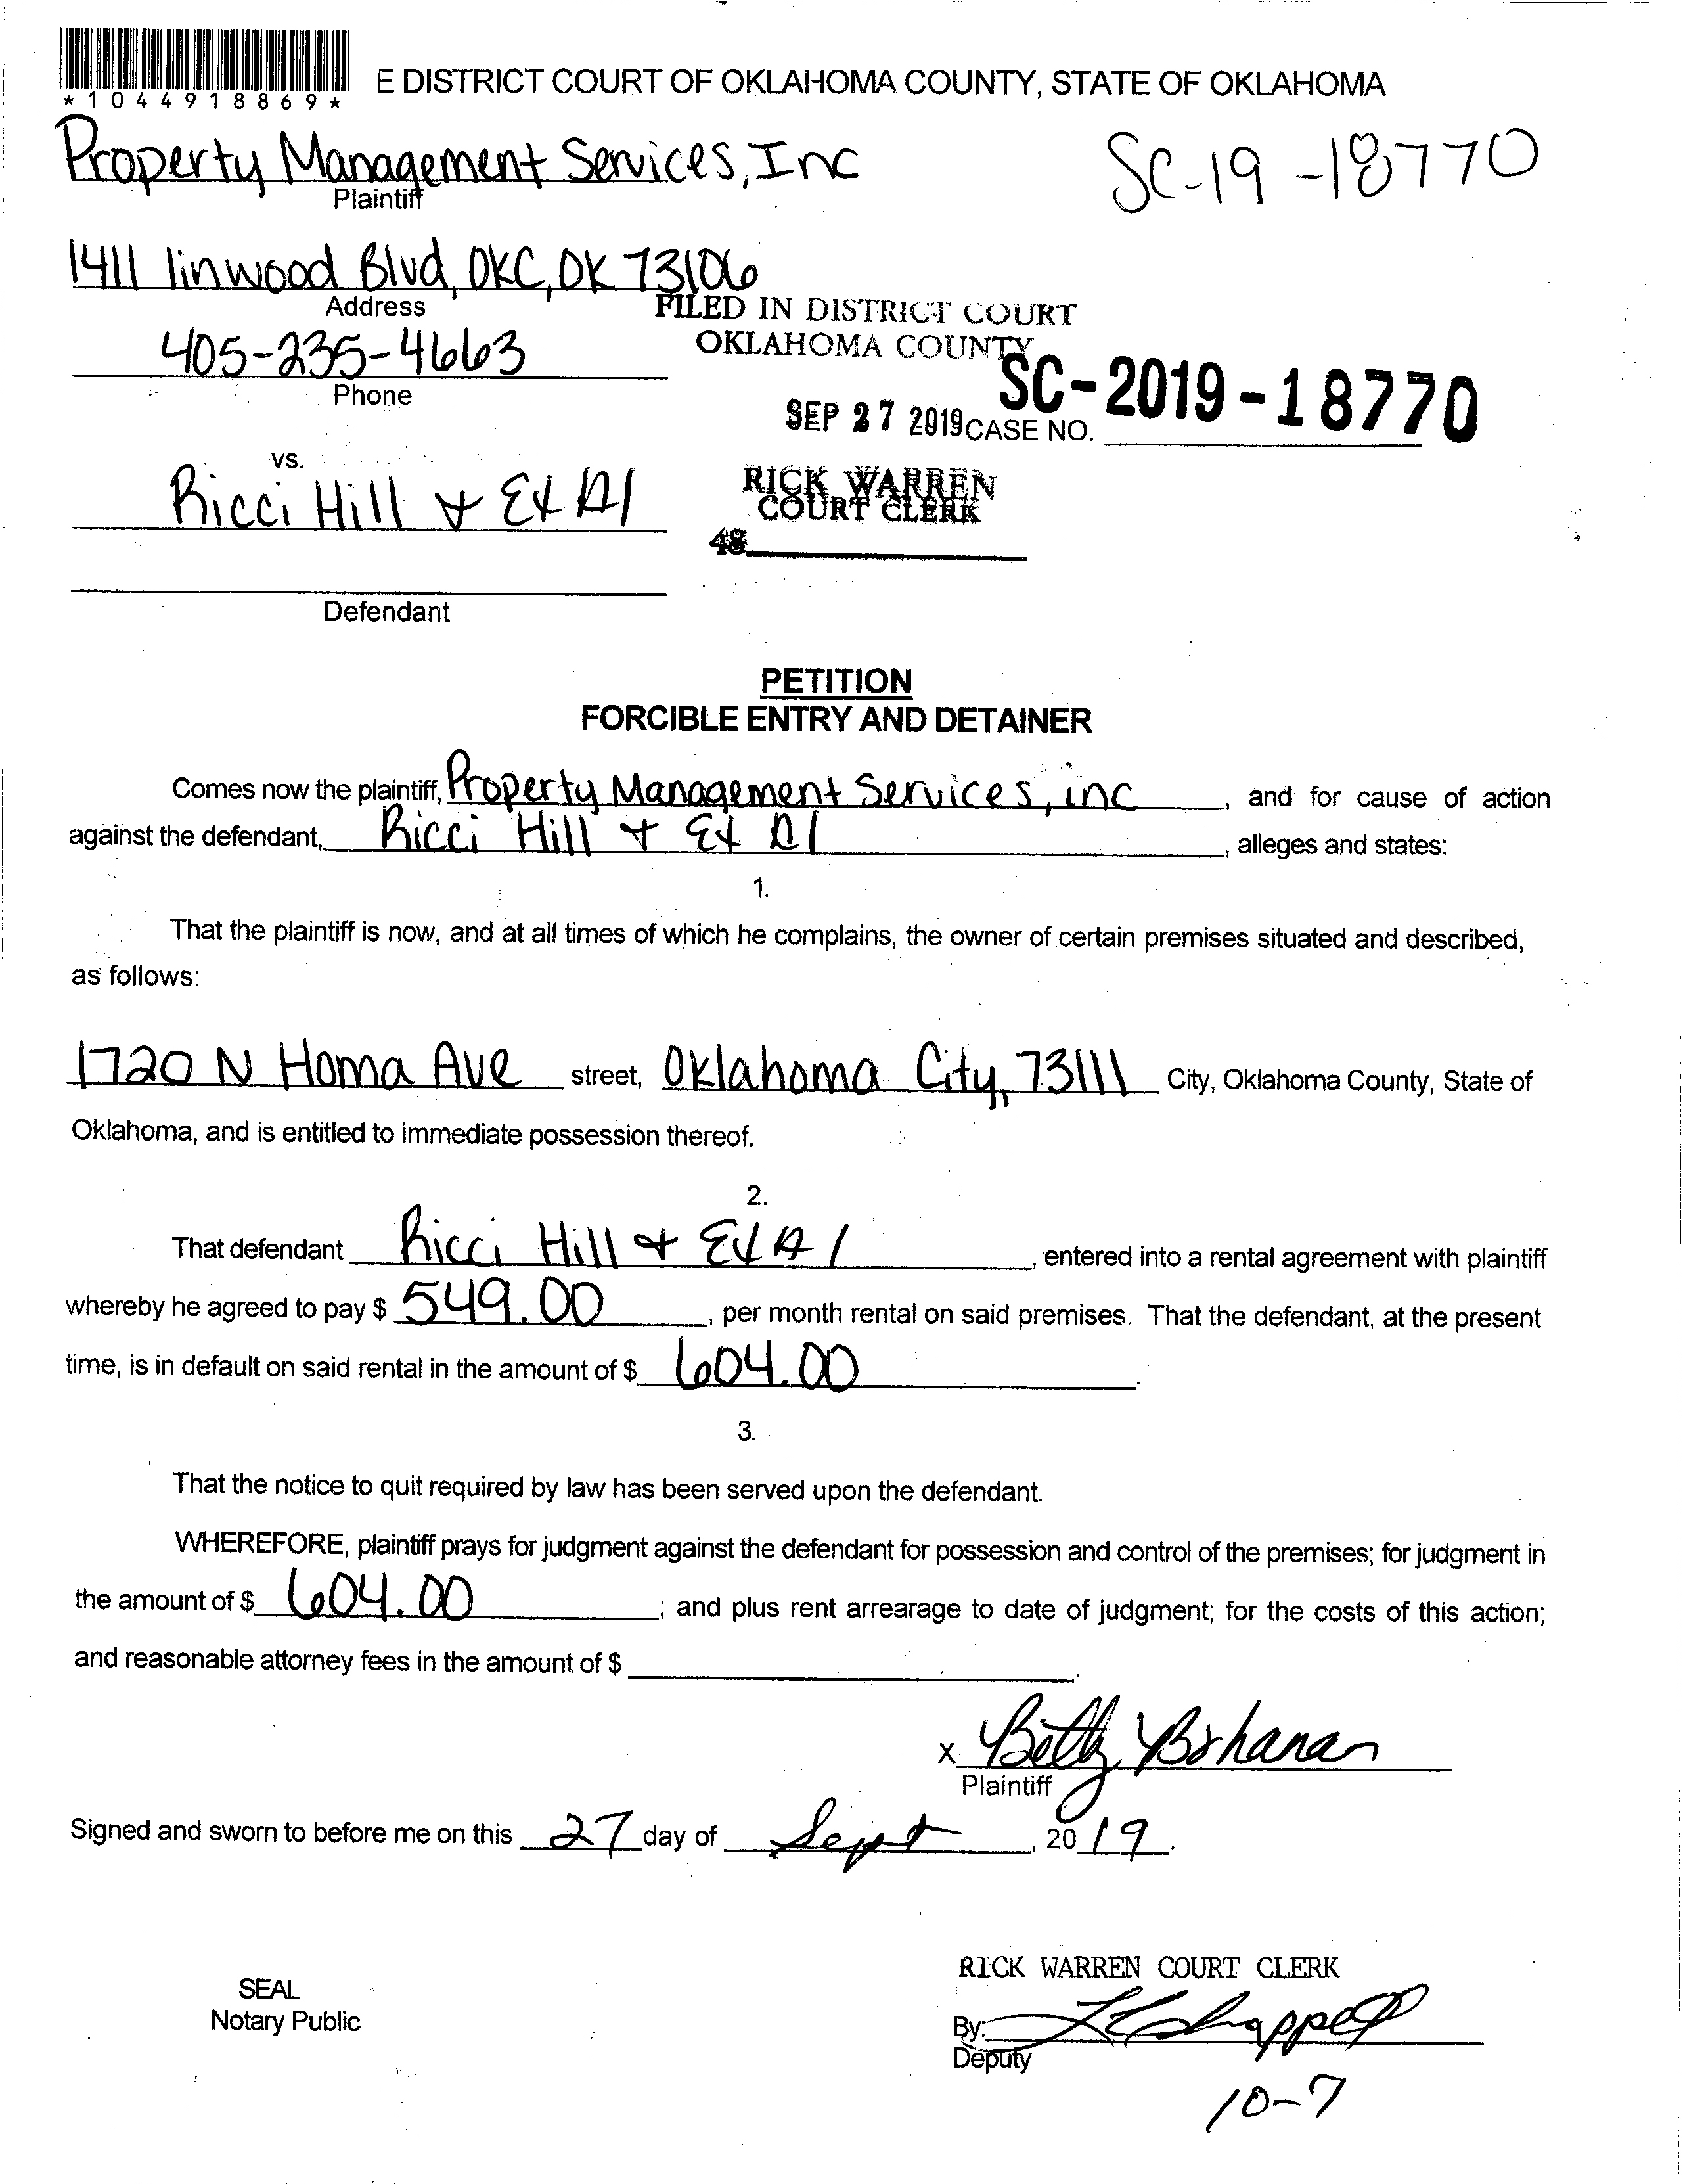 *1044918869*
E DISTRICT COURT OF OKLAHOMA COUNTY, STATE OF OKLAHOMA
Property Management Services, Inc
Plaintiff
SC-19-18770
1411 linwood Blvd, OKC, OK 73106
Address
FILED IN DISTRICT COURT
OKLAHOMA COUNTY
405-235-4663
Phone
SC-2019-18770
SEP 27 2019 CASE NO.
vs.
Ricci Hill & Et Al
RICK WARREN
COURT CLERK
48
Defendant
PETITION
FORCIBLE ENTRY AND DETAINER
Comes now the plaintiff, Property Management Services, inc, and for cause of action
against the defendant, Ricci Hill & Et Al, alleges and states:
1.
That the plaintiff is now, and at all times of which he complains, the owner of certain premises situated and described,
as follows:
1720 N Homa Ave street, Oklahoma City, 73111 City, Oklahoma County, State of
Oklahoma, and is entitled to immediate possession thereof.
2.
That defendant Ricci Hill & Et Al, entered into a rental agreement with plaintiff
whereby he agreed to pay $ 549.00, per month rental on said premises. That the defendant, at the present
time, is in default on said rental in the amount of $ 604.00.
3.
That the notice to quit required by law has been served upon the defendant.
WHEREFORE, plaintiff prays for judgment against the defendant for possession and control of the premises; for judgment in
the amount of $ 604.00; and plus rent arrearage to date of judgment; for the costs of this action;
and reasonable attorney fees in the amount of $ .
x Betty Bohanan
Plaintiff
Signed and sworn to before me on this 27 day of Sept, 2019.
RICK WARREN COURT CLERK
SEAL
Notary Public
By:
Deputy
10-7